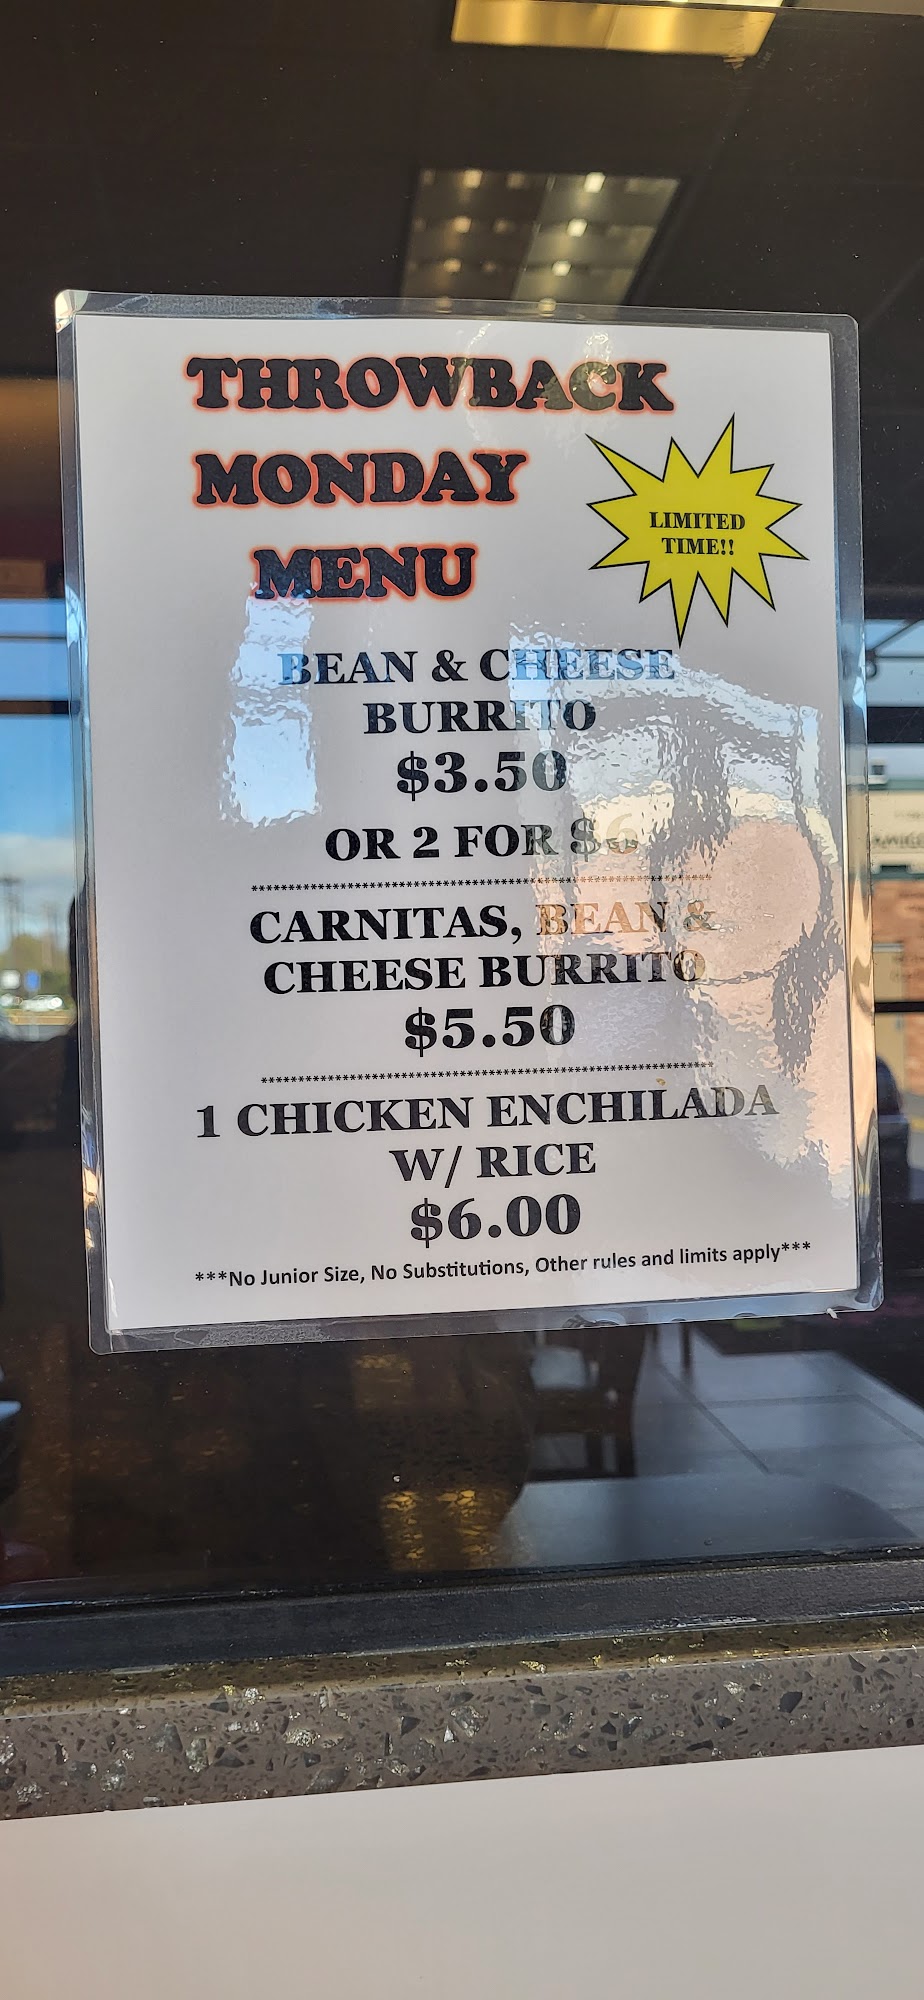 THROWBACK
MONDAY
MENU
LIMITED
TIME!!
BEAN & CHEESE
BURRITO
$3.50
OR 2 FOR $6
***************************************************************
CARNITAS, BEAN &
CHEESE BURRITO
$5.50
***************************************************************
1 CHICKEN ENCHILADA
W/ RICE
$6.00
***No Junior Size, No Substitutions, Other rules and limits apply***